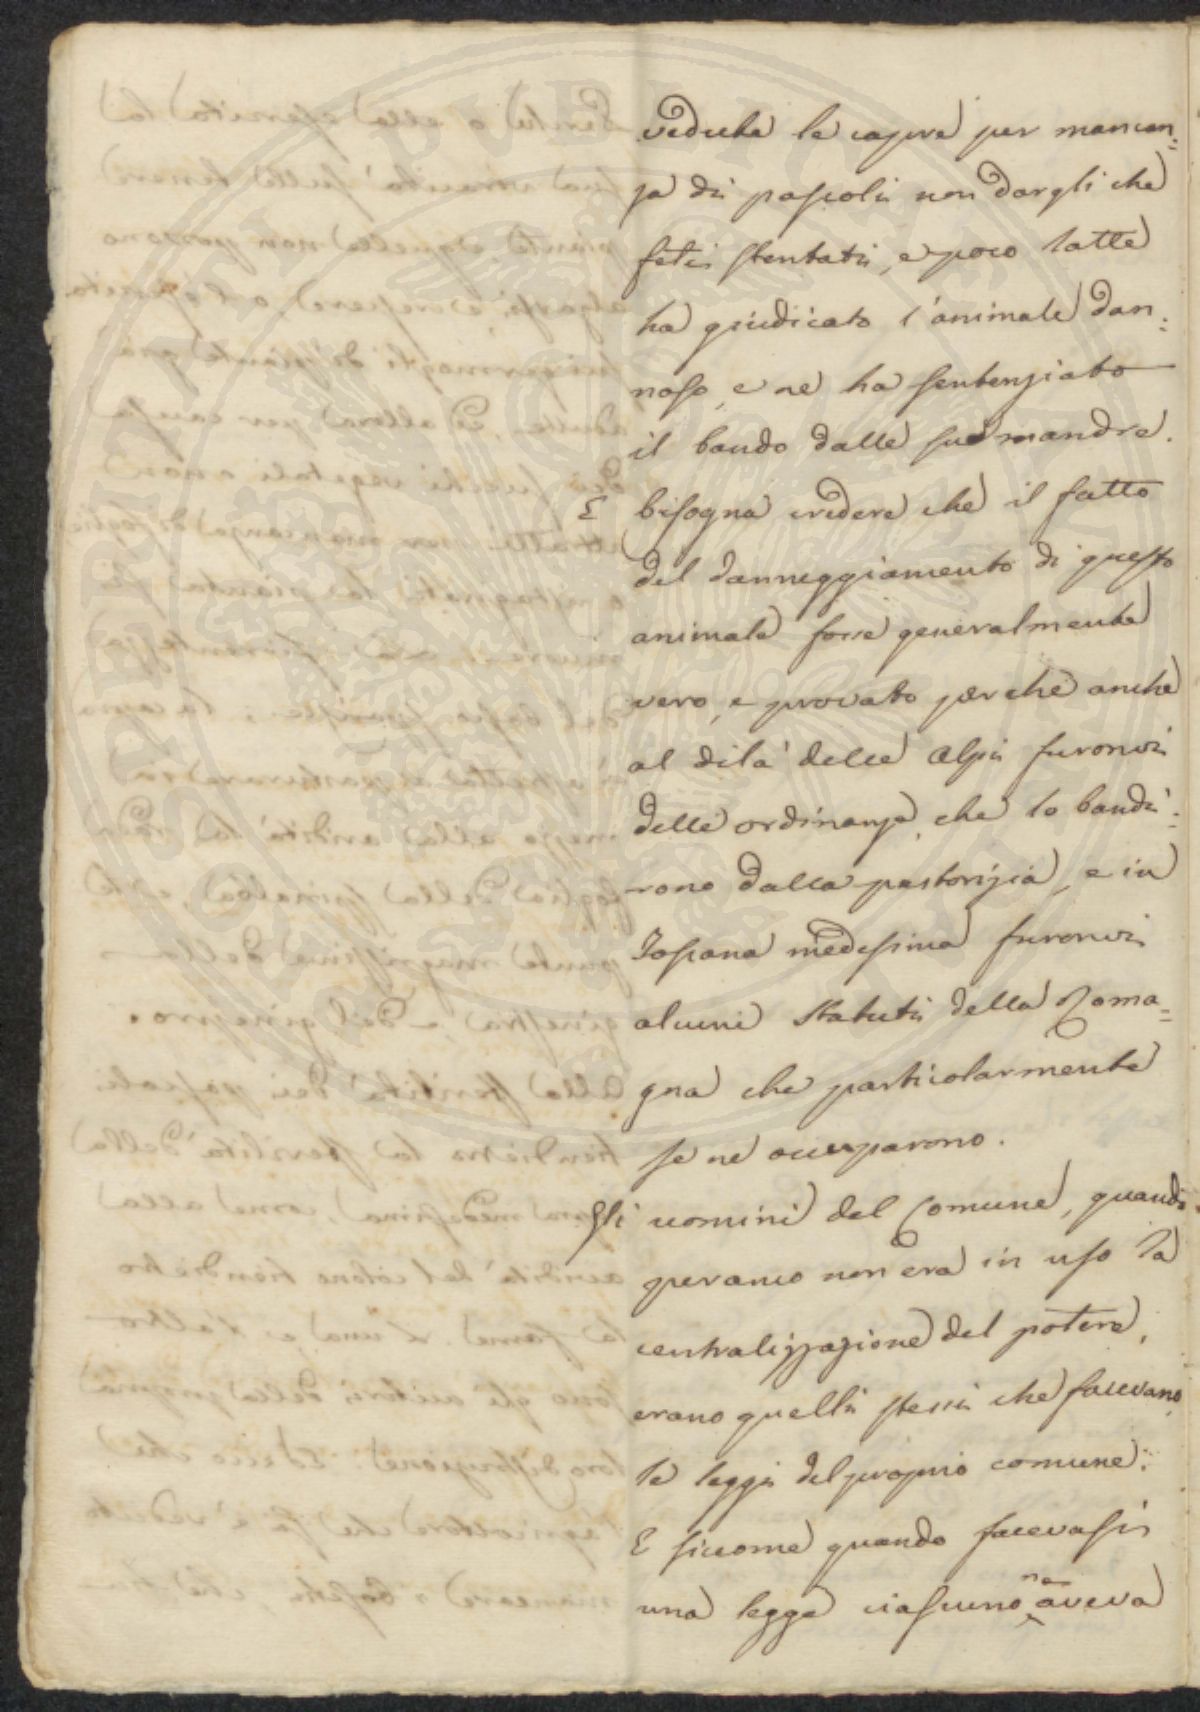 vedute le capre per mancan=
za di pascoli non dargli che
feti stentati, e poco latte
ha giudicato l'animale dan=
noso, e ne ha sentenziato
il bando dalle sue mandre.
E bisogna credere che il fatto
del danneggiamento di questo
animale fosse generalmente
vero, e provato perchè anche
al dilà delle Alpi furonvi
delle ordinanze, che lo bandi=
rono dalla pastorizia, e in
Toscana medesima furonvi
alcuni Statuti della Roma=
gna che particolarmente
se ne occuparono.
Gli uomini del Comune, quando
peranco non era in uso la
centralizzazione del potere,
erano quelli stessi che facevano
le leggi del proprio comune.
E siccome quando facevasi
una legge ciascuno ne aveva